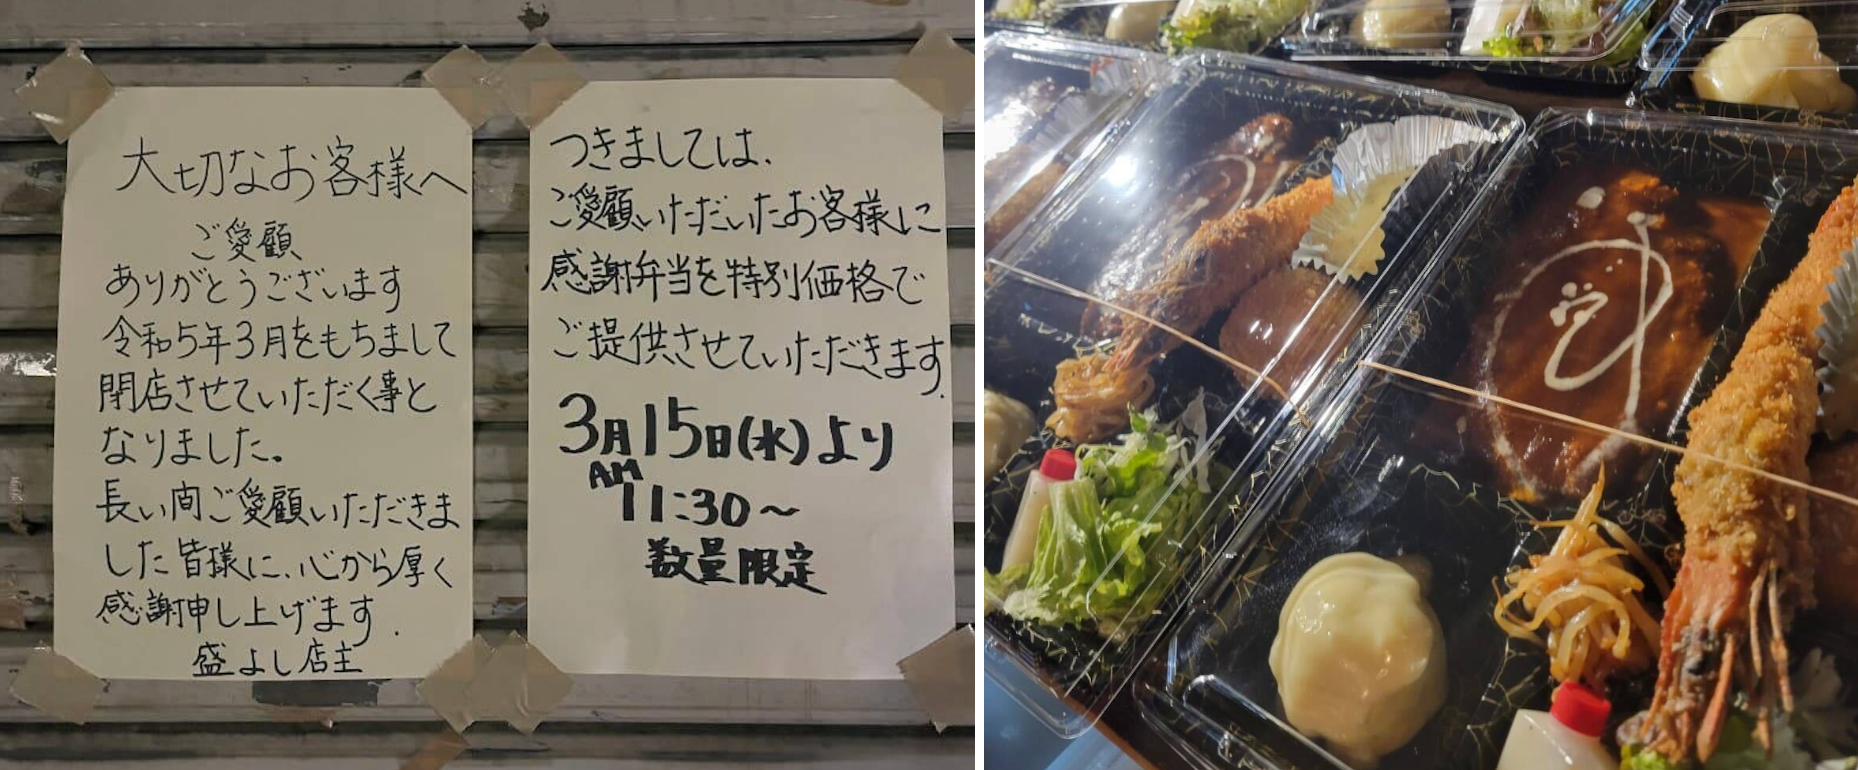 大切なお客様へ
ご愛顧
ありがとうございます
令和5年3月をもちまして
閉店させていただく事と
なりました。
長い間ご愛顧いただきま
した皆様に、心から厚く
感謝申し上げます.
盛よし店主
つきましては、
ご愛顧いただいたお客様に
感謝弁当を特別価格で
ご提供させていただきます.
3月15日(水)より
AM
11:30〜
数量限定